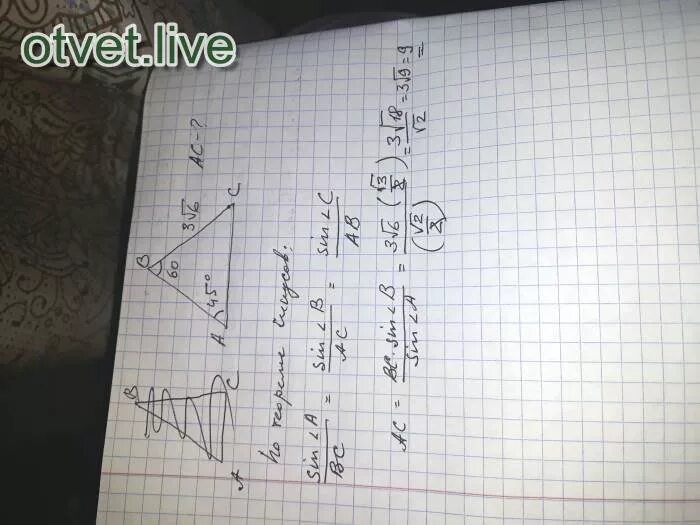 otvet.live
B
A
C
B
60
3√6
AC-?
A
45°
C
По теореме синусов:
sin∠A / BC = sin∠B / AC = sin∠C / AB
AC = BC·sin∠B / sin∠A = 3√6 (√3/2) / (√2/2) = 3√18 / √2 = 3√9 = 9